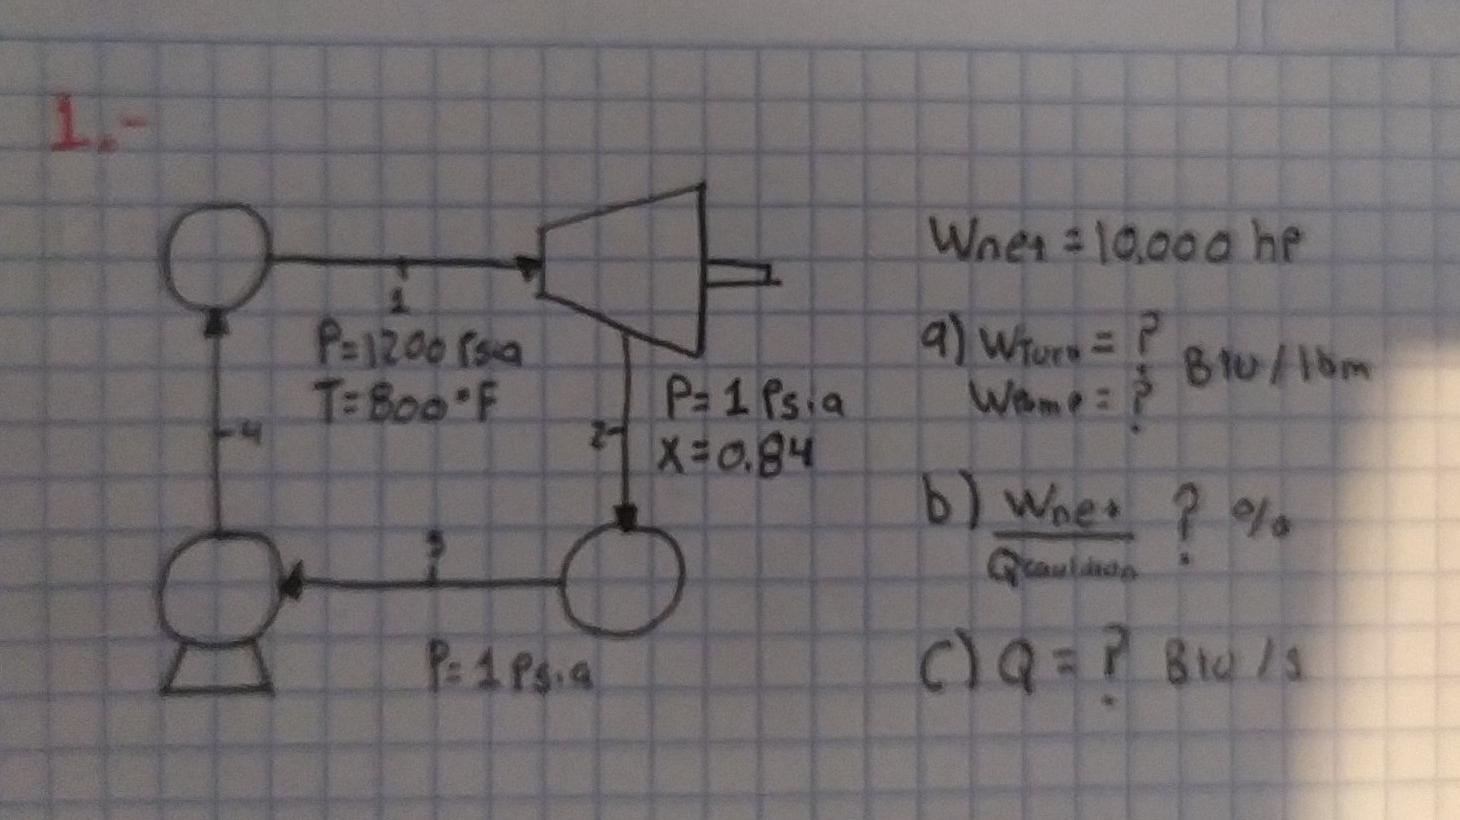 1.-
1
P=1200 Psia
T=800°F
4
2
P=1 Psia
X=0.84
3
P=1 Psia
Wnet=10,000 hp
a) WTurb=? Btu/lbm
WBomp=?
b) Wnet ? %
Q
c) Q=? Btu/s